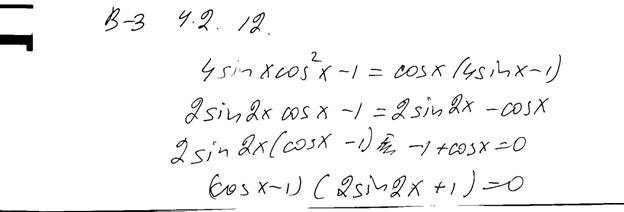 В-3 4.2. 12.
4 sin x cos²x - 1 = cos x (4 sin x - 1)
2 sin 2x cos x - 1 = 2 sin 2x - cos x
2 sin 2x (cos x - 1) - 1 + cos x = 0
(cos x - 1) (2 sin 2x + 1) = 0